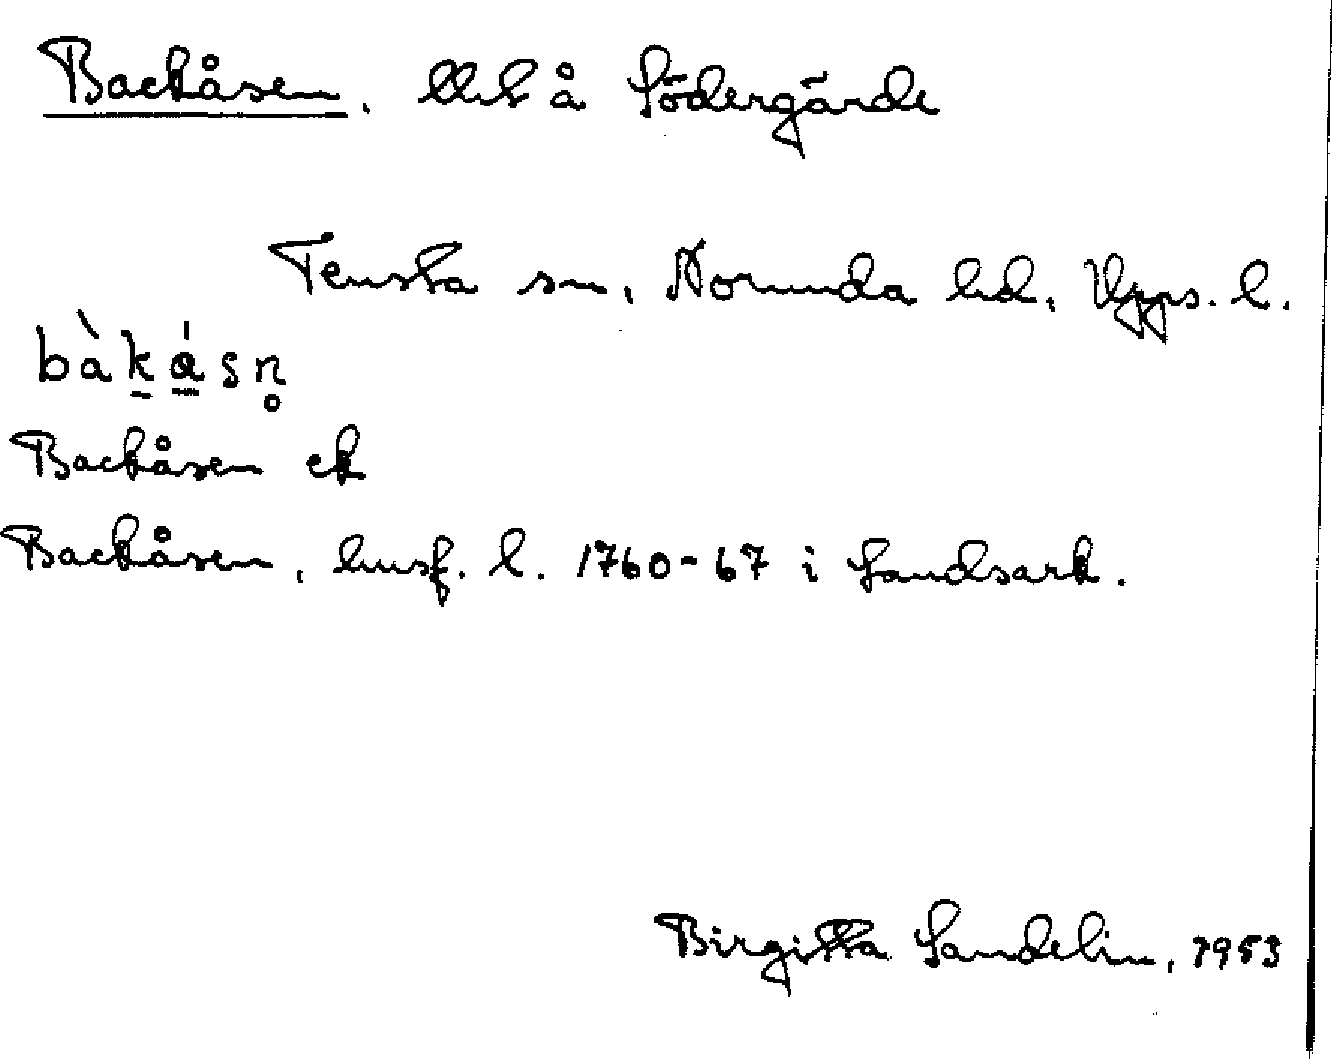 Backåsen, å Södergärde
Tensta sn, Norunda hd, Upps. l.
bàkásn̥
Backåsen ek
Backåsen, husf. l. 1760-67 i Landsark.
Birgitta Sandelin, 1953